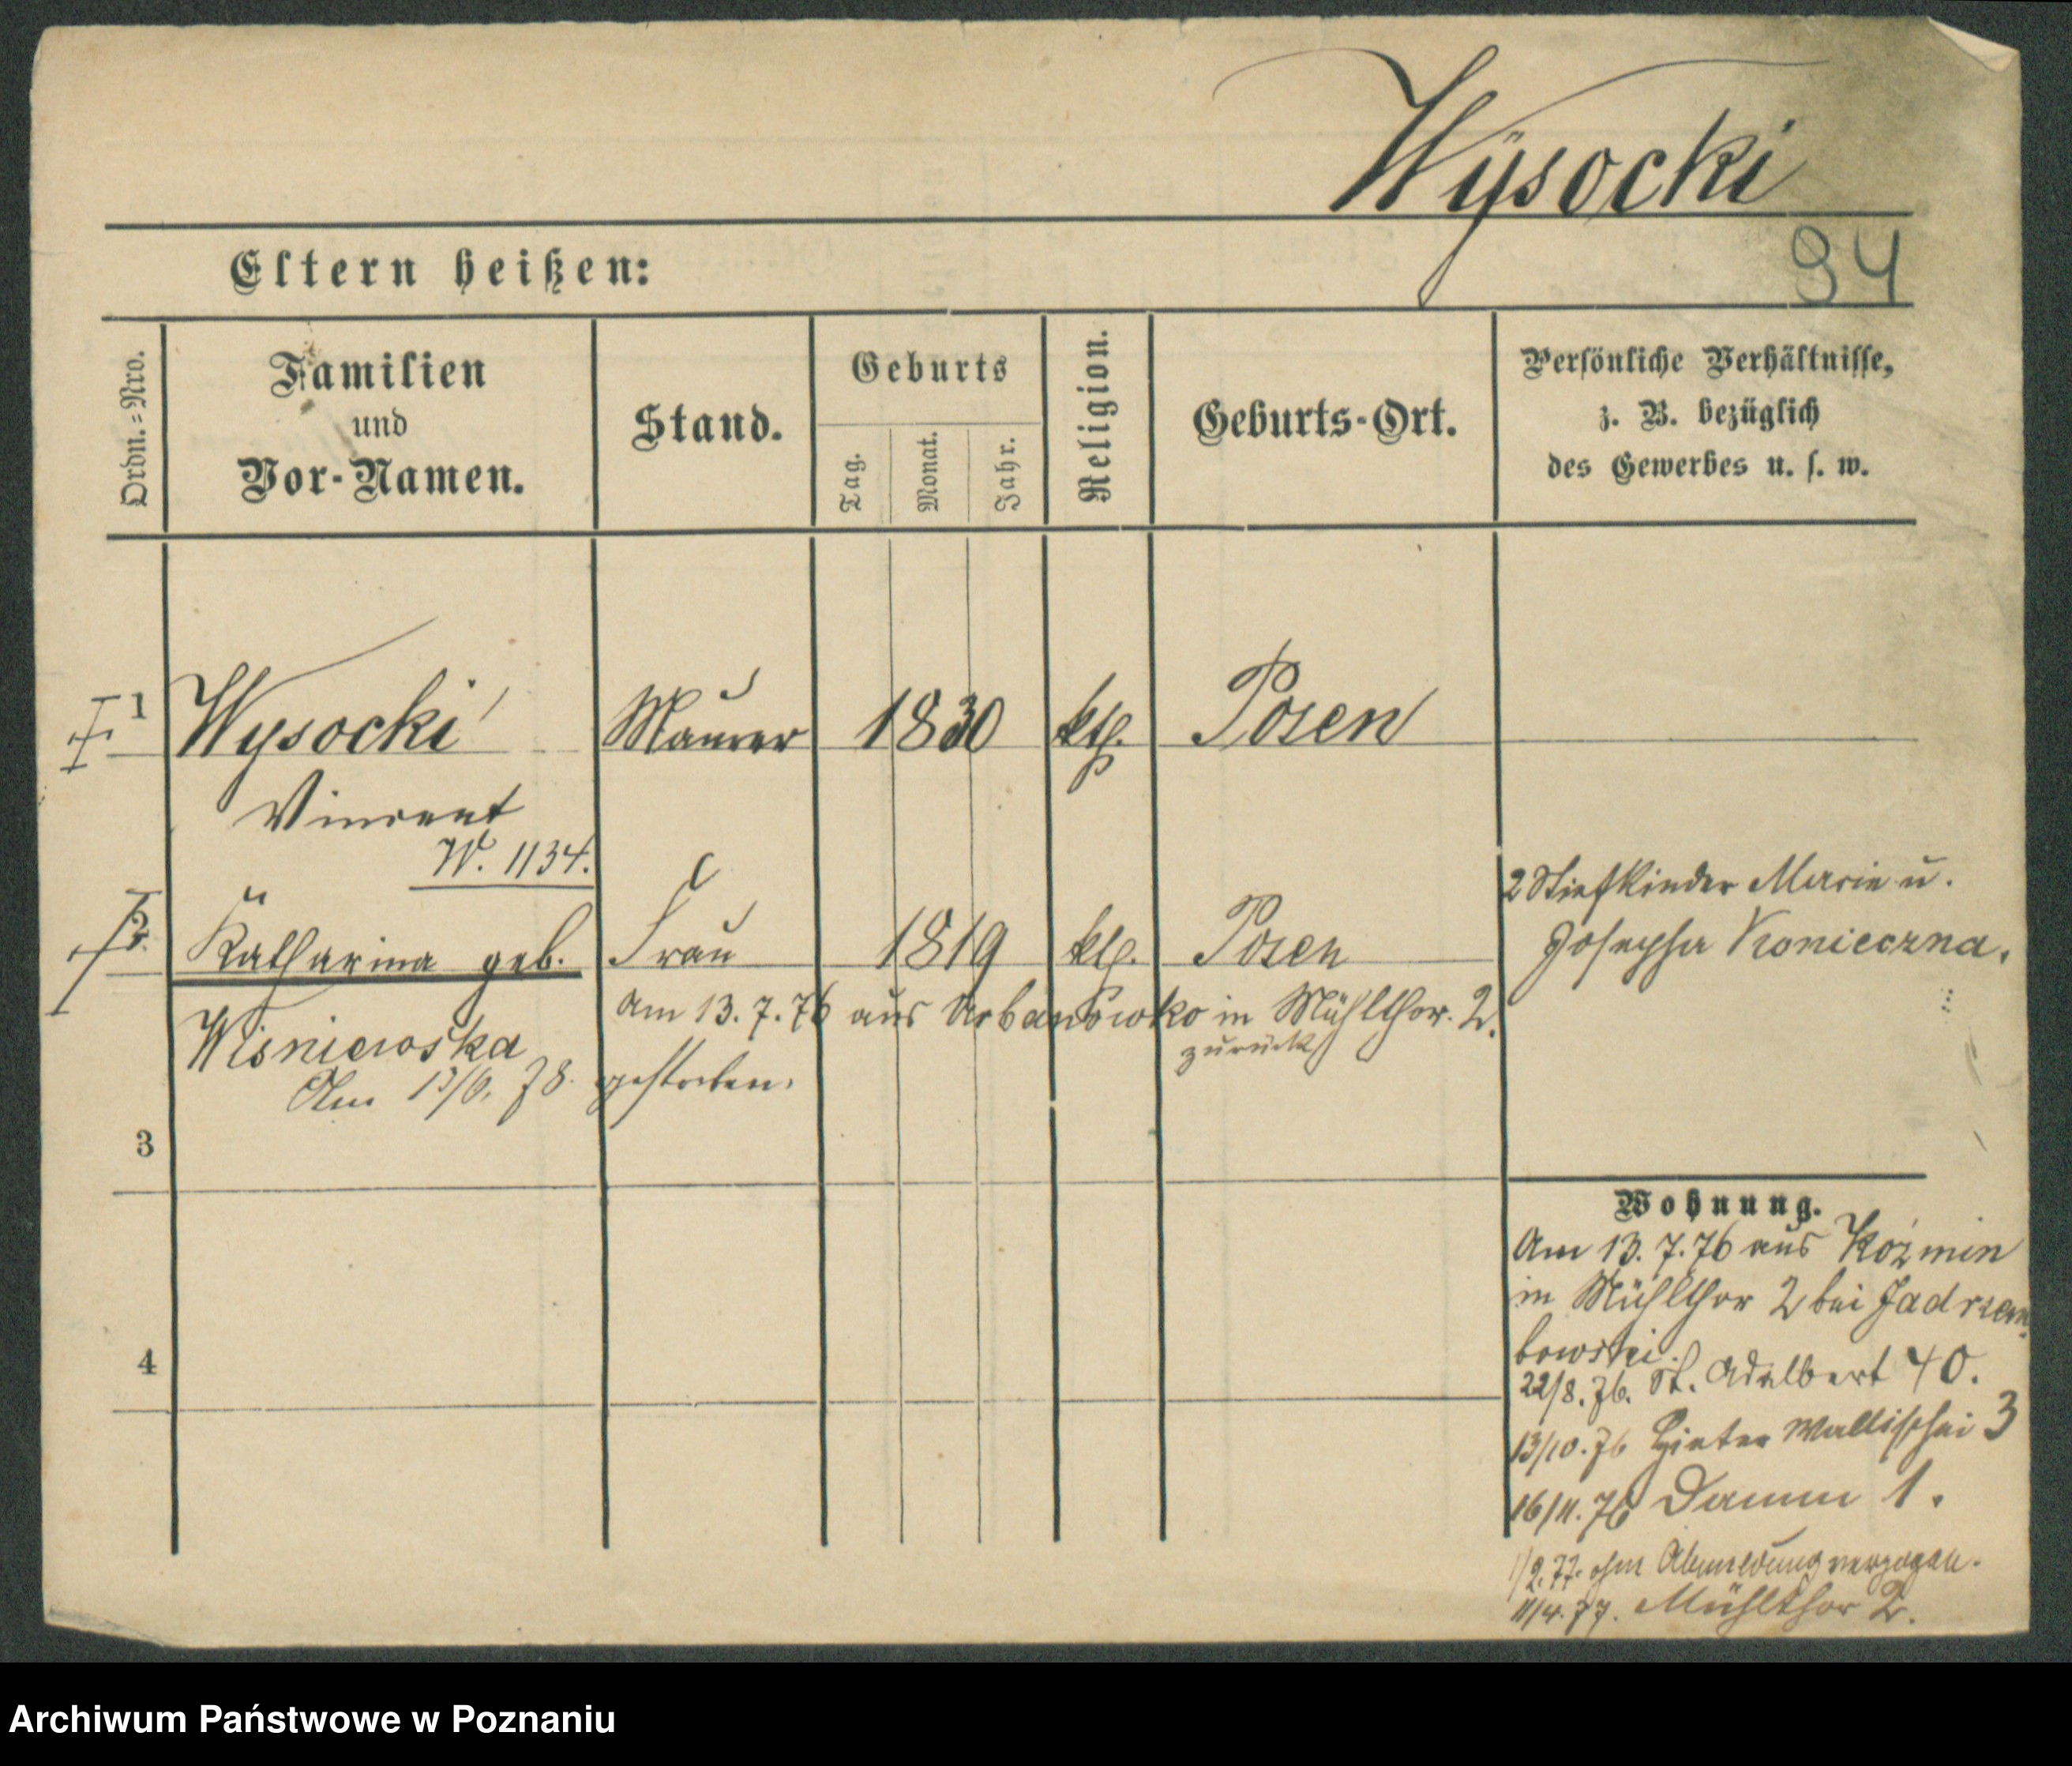 Wÿsocki
94
Eltern heißen:
Ordn.=Nro.
Familien
und
Vor-Namen.
Stand.
Geburts
Tag.
Monat.
Jahr.
Religion.
Geburts-Ort.
Persönliche Verhältnisse,
z. B. bezüglich
des Gewerbes u. s. w.
1 Wysocki Maurer 1830 kth. Posen
Vincent
W. 1134.
2 Katharina geb. Frau 1819 kth. Posen
2 Stiefkinder Marie u.
Josepha Konieczna.
Wisniewska
Am 13. 7. 76 aus Urbanowko in Mühlthor. 2.
zurück
Am 13/6. 78. gestorben.
3
4
Wohnung.
Am 13. 7. 76 aus Kozmin
in Mühlthor 2 bei Jadrzem
bowski.
22/8. 76. St. Adalbert 40.
13/10. 76 Hinter Wallischei 3
16/11. 76 Damm 1.
1/2. 77. ohne Abmeldung verzogen.
11/4. 77. Mühlthor 2.
Archiwum Państwowe w Poznaniu